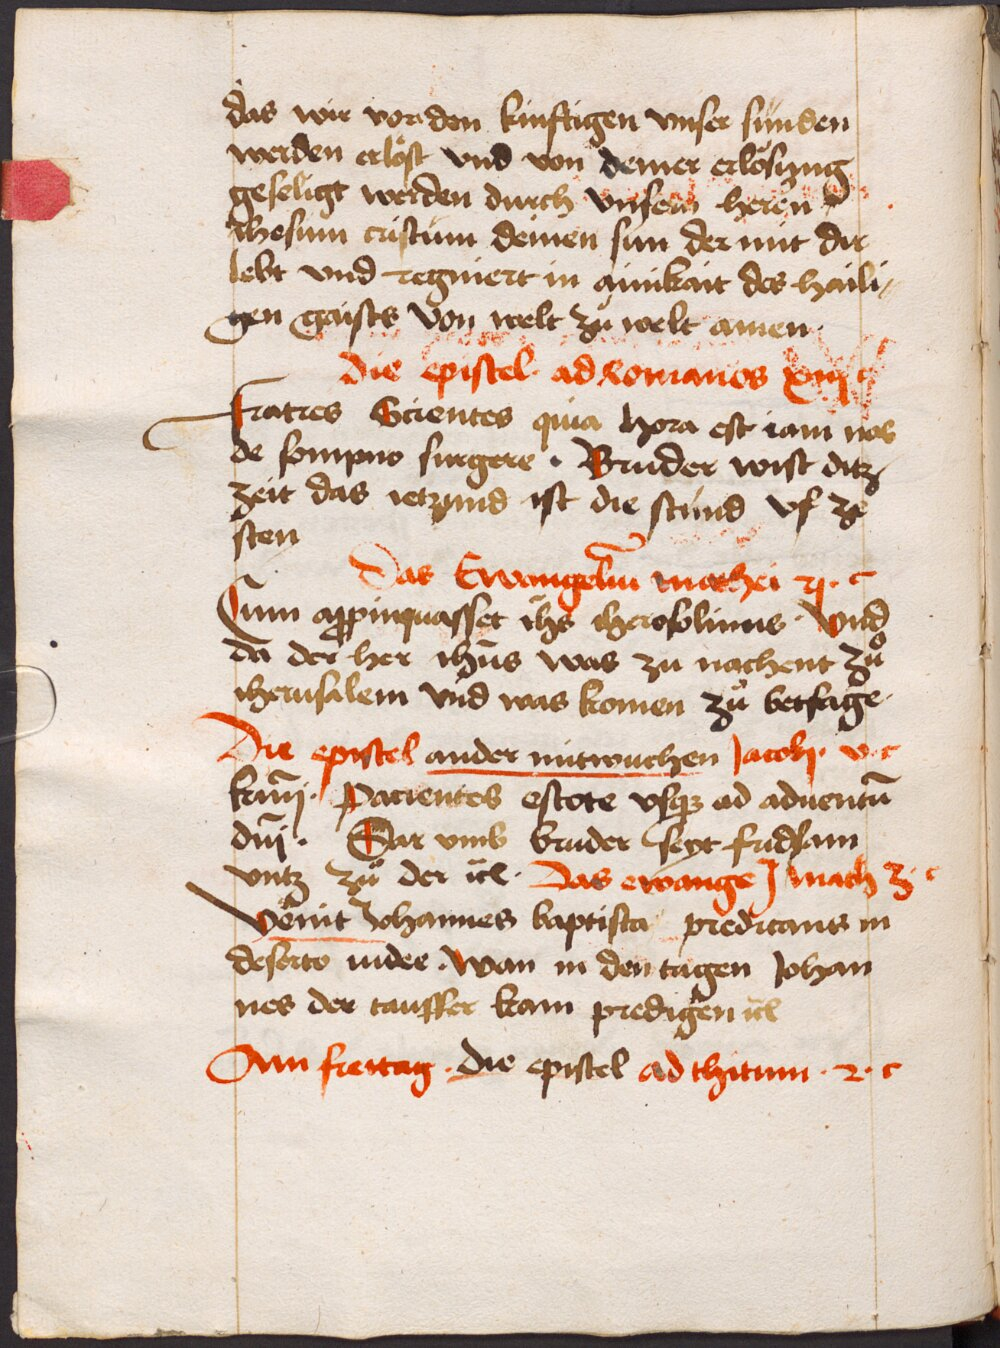 das wir von den kinfftigen vnser sünden
werden erlöst vnd von deiner erlösung
geseligt werden durch vnsern heren
ihesum cristum deinen sun der mit dir
lebt vnd regniert in ainikait des haili
gen gaists von welt zů welt amen.
Die epistel ad Romanos xiij c
Fratres Scientes quia hora est iam nos
de sompno surgere. Bruder wist ditz
zeit das ietzund ist die stund vf ze
sten
Das Ewangeliū mathei 21. c
Cum appinquasset ihs iherosolimis. Vnd
da der her ihus was zu nachent zů
iherusalem vnd was komen zů betfage.
Die epistel ander mitwuchen Jacobi. v. c
kāīj. Pacientes estote vsqz ad aduentū
dnī. Dar vmb bruder seyt fridsam
vntz zů der ic̄l. Das ewange J mach 3. c
Venit Johannes baptista predicans in
deserto iudee. Wan in den tagen Johan
nes der tauffer kam predigen ic̄l
Am freitag. die epistel ad thitum. 2. c